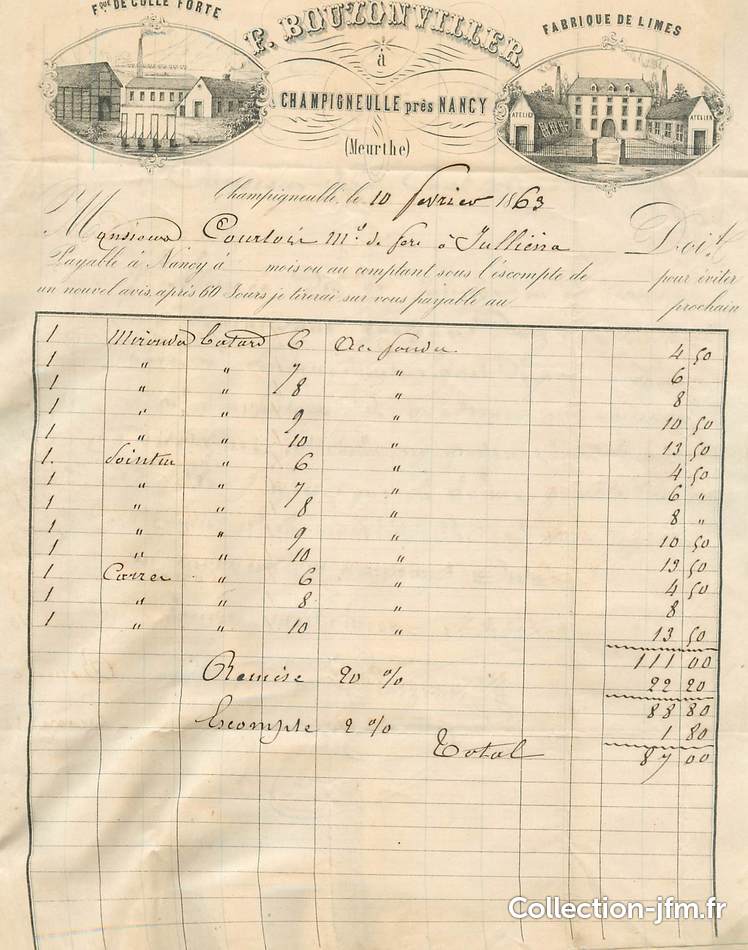 Fque DE COLLE FORTE
F. BOUZONVILLER
FABRIQUE DE LIMES
à
CHAMPIGNEULLE près NANCY
(Meurthe)
ATELIER
ATELIER
Champigneulle, le 10 fevrier 1863
Monsieur Courtois Md. de fer à Doit
Payable à Nancy à mois ou au comptant sous l'escompte de pour éviter
un nouvel avis, après 60 Jours je tirerai sur vous payable au prochain
1 batard 6 Acier fondu 4 50
1 " " 7 " 6
1 " " 8 " 8
1 " " 9 " 10 50
1 " " 10 " 13 50
1. Pointu " 6 " 4 50
1 " " 7 " 6 "
1 " " 8 " 8 "
1 " " 9 " 10 50
1 " " 10 " 13 50
1 Carrer " 6 " 4 50
1 " " 8 " 8
1 " " 10 " 13 50
111 00
Remise 20 % 22 20
88 80
Escompte 2 % 1 80
Total 87 00
Collection-jfm.fr